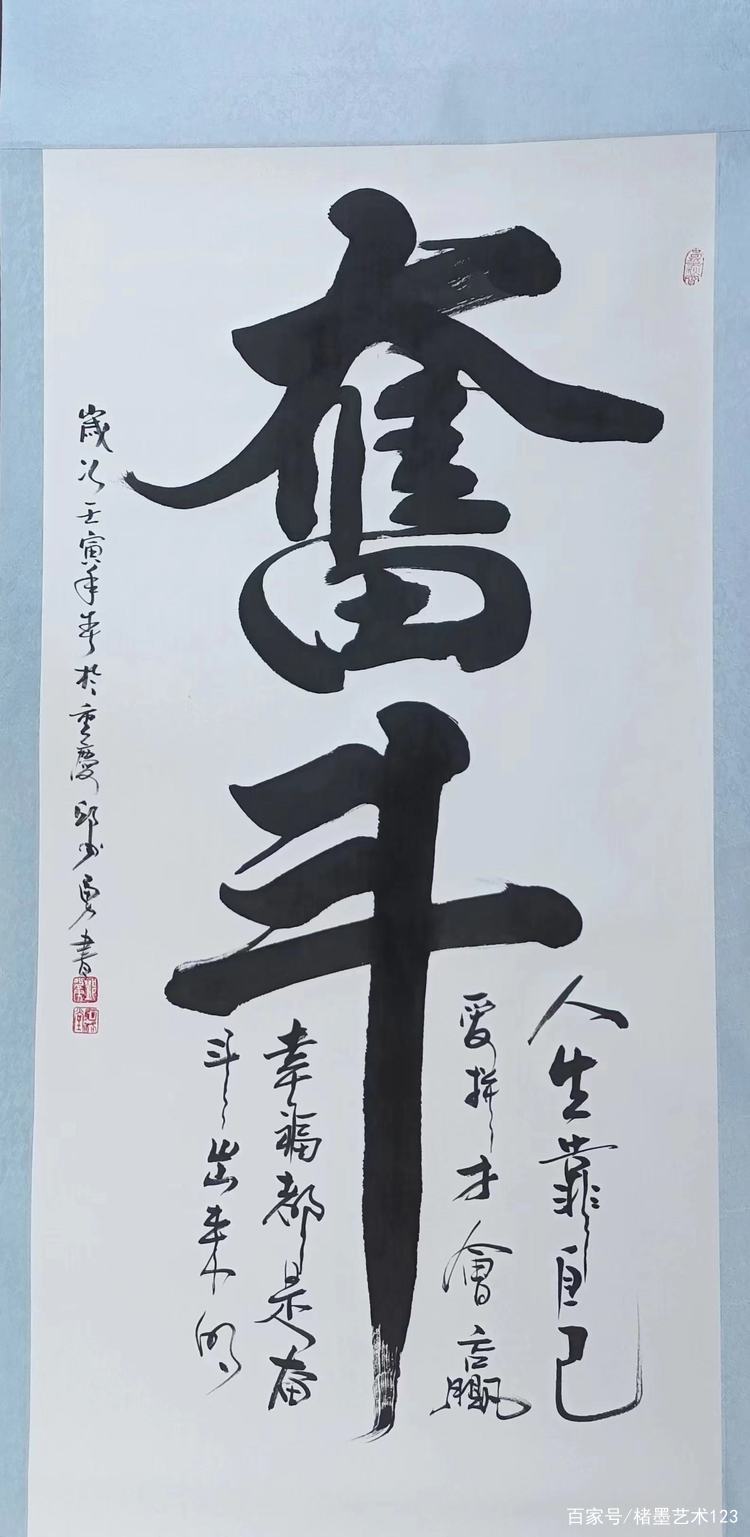 奮斗
人生靠自己
愛拚才會贏
幸福都是奋
斗出来的
歲次壬寅年春於重慶邱少勇書
百家号/楮墨艺术123